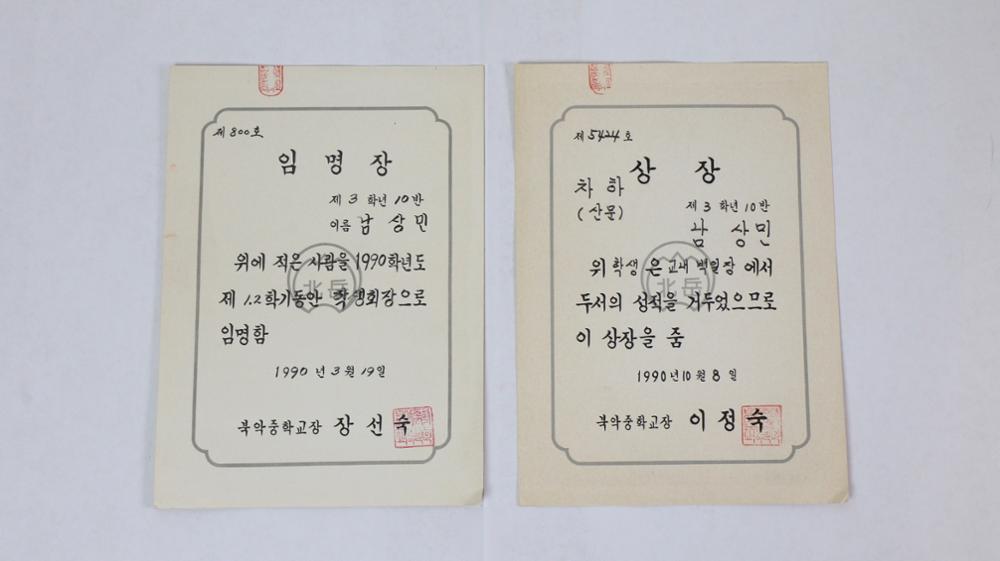 제 800 호
임 명 장
제 3 학년 10 반
이름 남 상 민
위에 적은 사람을 1990학년도
제 1.2 학기동안 학생회장으로
임명함
1990 년 3 월 19 일
북악중학교장 장 선 숙
北岳
제 5424 호
상 장
차 하
(산문)
제 3 학년 10 반
남 상 민
위 학생 은 교내 백일장 에서
두서의 성적을 거두었으므로
이 상장을 줌
1990 년 10 월 8 일
북악중학교장 이 정 숙
北岳